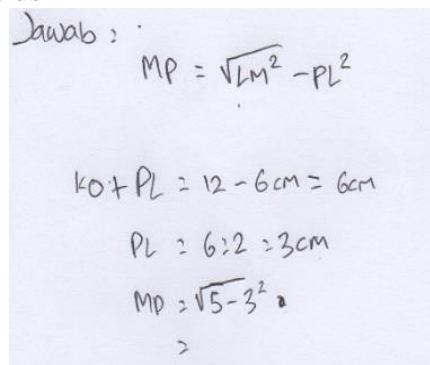 Jawab :
MP = √LM² - PL²
KO + PL = 12 - 6 cm = 6cm
PL = 6 : 2 = 3cm
MP = √5-3²
=